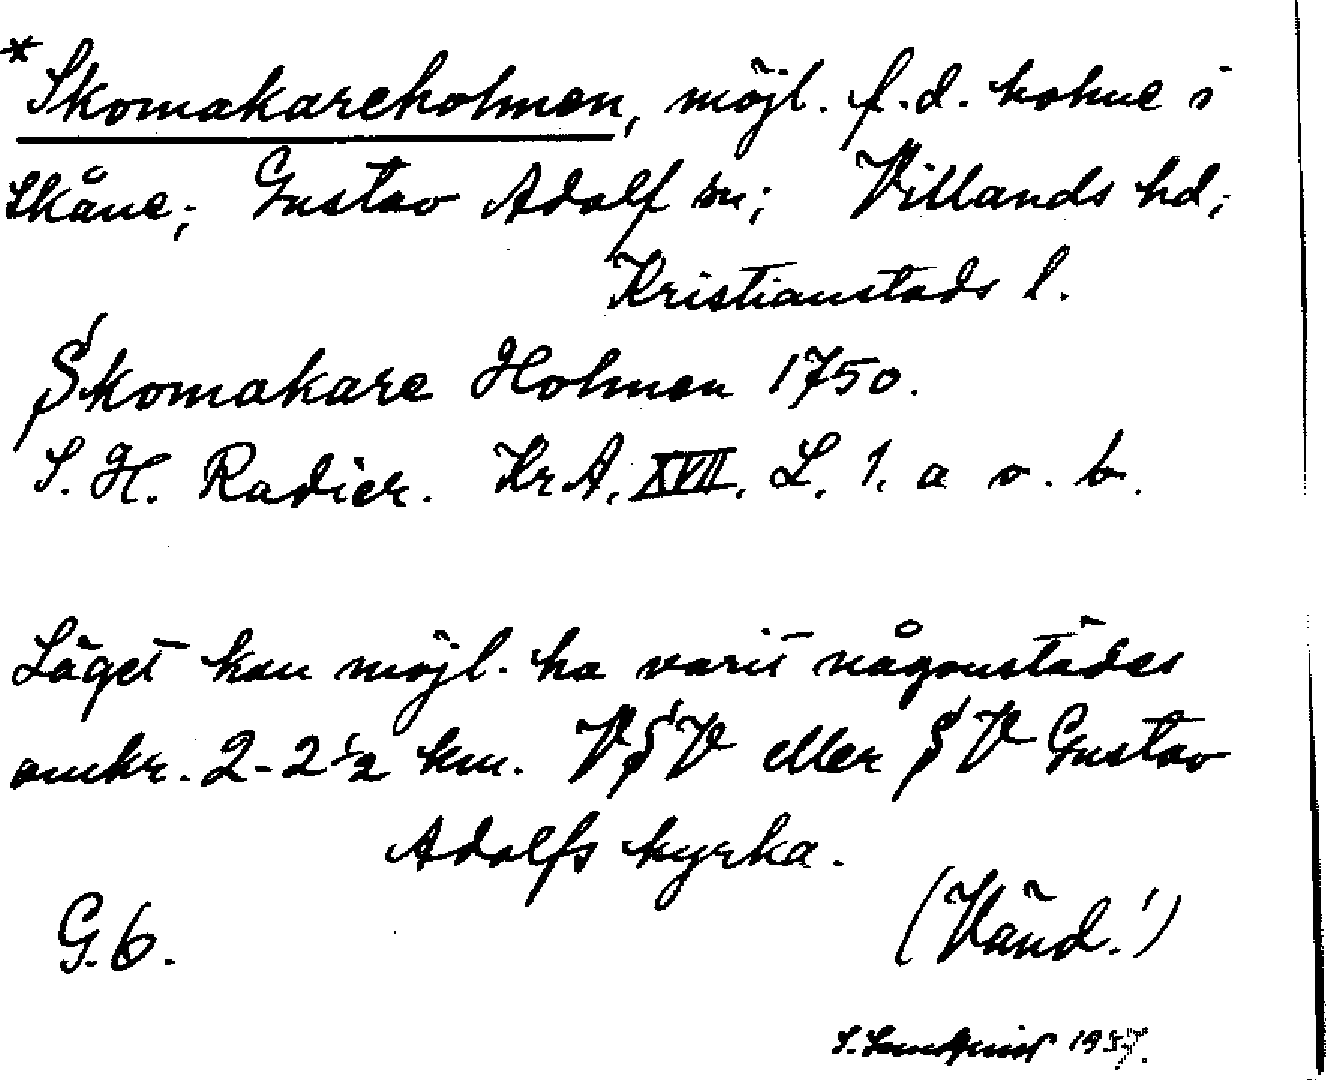 *Skomakareholmen, möjl. f.d. holme i
Skåne; Gustav Adolf sn; Villands hd;
Kristianstads l.
Skomakare Holmen 1750.
S. H. Radier. KrA. XVII. L. 1. a o. b.
Läget kan möjl. ha varit någonstädes
omkr. 2-2½ km. VSV eller SV Gustav
Adolfs kyrka.
G.6.
(Vänd!)
S. Lundqvist 1957.